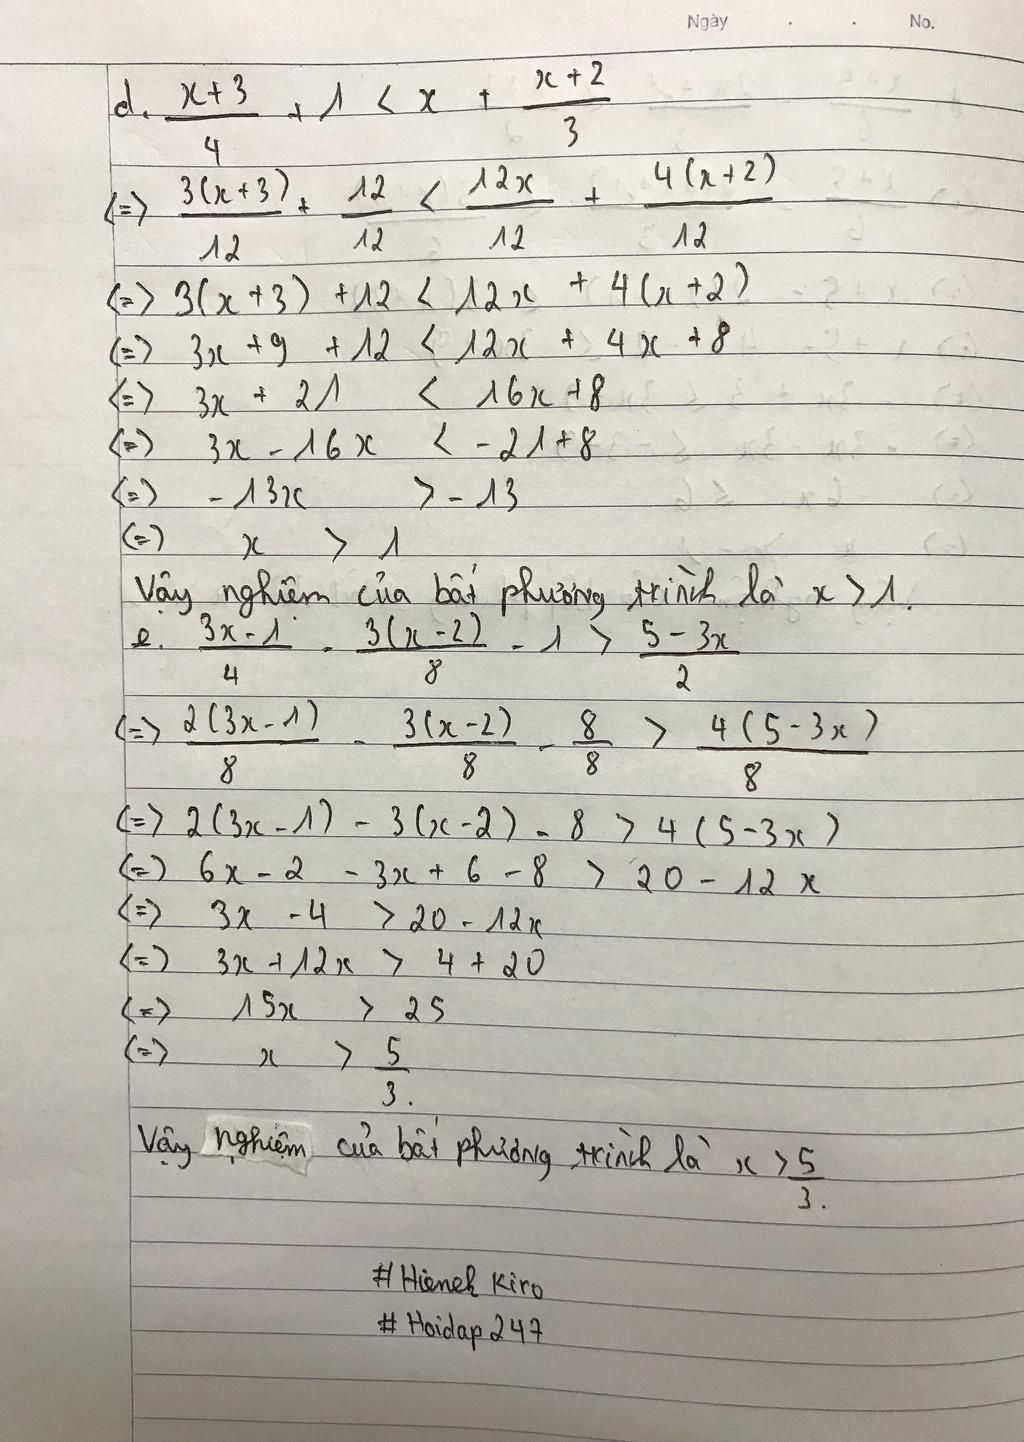 Ngày . . No.
d. (x+3)/4 + 1 < x + (x+2)/3
(=) 3(x+3)/12 + 12/12 < 12x/12 + 4(x+2)/12
(=) 3(x+3) + 12 < 12x + 4(x+2)
(=) 3x + 9 + 12 < 12x + 4x + 8
(=) 3x + 21 < 16x + 8
(=) 3x - 16x < -21 + 8
(=) -13x > -13
(=) x > 1
Vậy nghiệm của bất phương trình là x > 1.
e. (3x-1)/4 - 3(x-2)/8 - 1 > (5-3x)/2
(=) 2(3x-1)/8 - 3(x-2)/8 - 8/8 > 4(5-3x)/8
(=) 2(3x-1) - 3(x-2) - 8 > 4(5-3x)
(=) 6x - 2 - 3x + 6 - 8 > 20 - 12x
(=) 3x - 4 > 20 - 12x
(=) 3x + 12x > 4 + 20
(=) 15x > 25
(=) x > 5/3.
Vậy nghiệm của bất phương trình là x > 5/3.
#Hienek Kiro
#Hoidap247